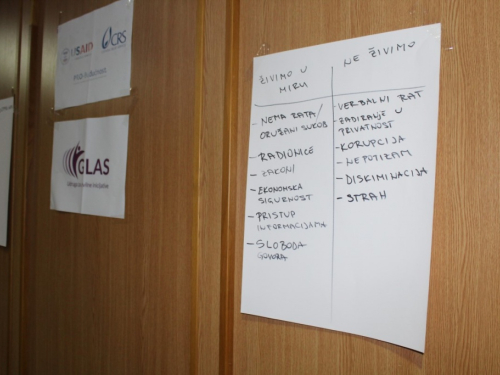 USAID
CRS
GLAS
ŽIVIMO U
MIRU
- NEMA RATA/
ORUŽANI SUKOB
- RADIONICE
- ZAKONI
- EKONOMSKA
SIGURNOST
- PRISTUP
INFORMACIJAMA
- SLOBODA
GOVORA
NE ŽIVIMO
- VERBALNI RAT
- ZADIRANJE U
PRIVATNOST
- KORUPCIJA
- NEPOTIZAM
- DISKIMINACIJA
- STRAH